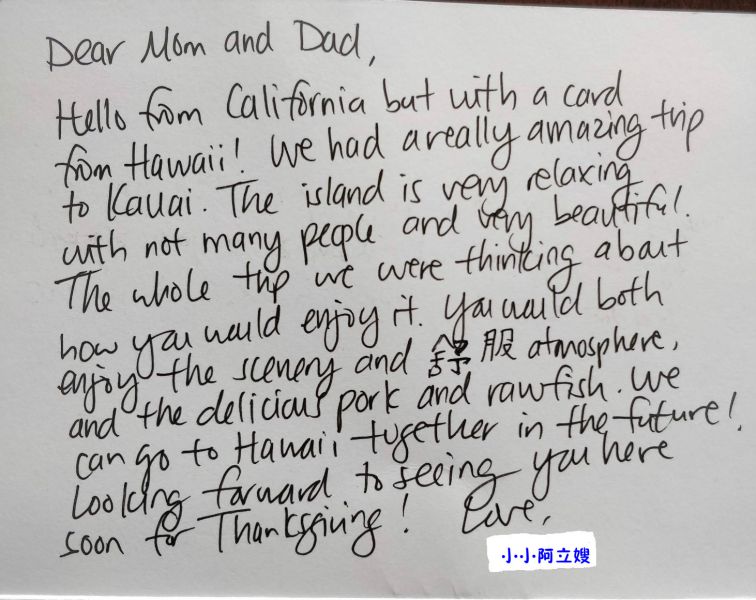 Dear Mom and Dad,
Hello from California but with a card
from Hawaii! We had a really amazing trip
to Kauai. The island is very relaxing
with not many people and very beautiful.
The whole trip we were thinking about
how you would enjoy it. You would both
enjoy the scenery and 舒服 atmosphere,
and the delicious pork and raw fish. We
can go to Hawaii together in the future!
Looking forward to seeing you here
soon for Thanksgiving! Love,
小小阿立嫂